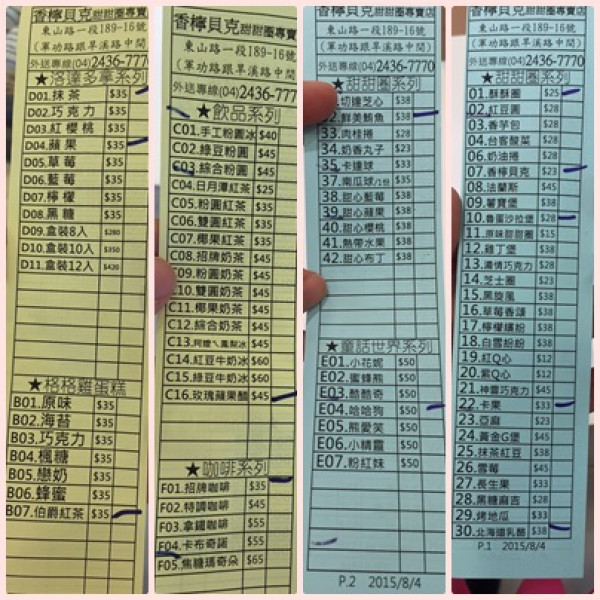 香檸貝克甜甜圈專賣店
東山路一段189-16號
(軍功路跟旱溪路中間)
外送專線(04)2436-7770
★洛達多拿系列
D01.抹茶 $35
D02.巧克力 $35
D03.紅櫻桃 $35
D04.蘋果 $35
D05.草莓 $35
D06.藍莓 $35
D07.檸檬 $35
D08.黑糖 $35
D09.盒裝8入 $280
D10.盒裝10入 $350
D11.盒裝12入 $420
★格格雞蛋糕
B01.原味 $35
B02.海苔 $35
B03.巧克力 $35
B04.楓糖 $35
B05.戀奶 $35
B06.蜂蜜 $35
B07.伯爵紅茶 $35
香檸貝克甜甜圈專賣店
東山路一段189-16號
(軍功路跟旱溪路中間)
外送專線(04)2436-777
★飲品系列
C01.手工粉圓冰 $40
C02.綠豆粉圓 $45
C03.綜合粉圓 $45
C04.日月潭紅茶 $25
C05.粉圓紅茶 $35
C06.雙圓紅茶 $35
C07.椰果紅茶 $35
C08.招牌奶茶 $45
C09.粉圓奶茶 $45
C10.雙圓奶茶 $45
C11.椰果奶茶 $45
C12.綜合奶茶 $45
C13.阿嬤ㄟ鳳梨冰 $45
C14.紅豆牛奶冰 $60
C15.綠豆牛奶冰 $60
C16.玫瑰蘋果醋 $45
★咖啡系列
F01.招牌咖啡 $35
F02.特調咖啡 $45
F03.拿鐵咖啡 $55
F04.卡布奇諾 $55
F05.焦糖瑪奇朵 $65
香檸貝克甜甜圈專賣店
東山路一段189-16號
(軍功路跟旱溪路中間)
外送專線(04)2436-7770
★甜甜圈系列
切達芝心 $38
32.鮮美鮪魚 $38
33.肉桂捲 $28
34.奶香丸子 $23
35.卡達球 $33
37.南瓜球/1份 $35
38.甜心藍莓 $38
39.甜心蘋果 $38
40.甜心櫻桃 $38
41.熱帶水果 $38
42.甜心布丁 $38
★童話世界系列
E01.小花妮 $50
E02.蜜蜂熊 $50
E03.酷酷奇 $50
E04.哈哈狗 $50
E05.熊愛笑 $50
E06.小精靈 $50
E07.粉紅妹 $50
P.2 2015/8/4
香檸貝克甜甜圈專賣店
東山路一段189-16號
(軍功路跟旱溪路中間)
外送專線(04)2436-7770
★甜甜圈系列
01.酥酥圈 $25
02.紅豆圓 $28
03.香芋包 $28
04.台客酸菜 $28
06.奶油捲 $28
07.香檸貝克 $23
08.法蘭酥 $45
09.薯寶堡 $38
10.魯蛋沙拉堡 $28
11.原味甜甜圈 $15
12.雞丁堡 $38
13.濃情巧克力 $28
14.芝士圈 $23
15.黑旋風 $38
16.草莓香頌 $38
17.檸檬繽紛 $38
18.白雪紛紛 $38
19.紅Q心 $12
20.紫Q心 $12
21.神靈巧克力 $45
22.卡果 $33
23.亞麻 $23
24.黃金G堡 $45
25.抹茶紅豆 $38
26.雪莓 $45
27.長生果 $33
28.黑糖麻吉 $28
29.烤地瓜 $33
30.北海道乳酪 $38
P.1 2015/8/4